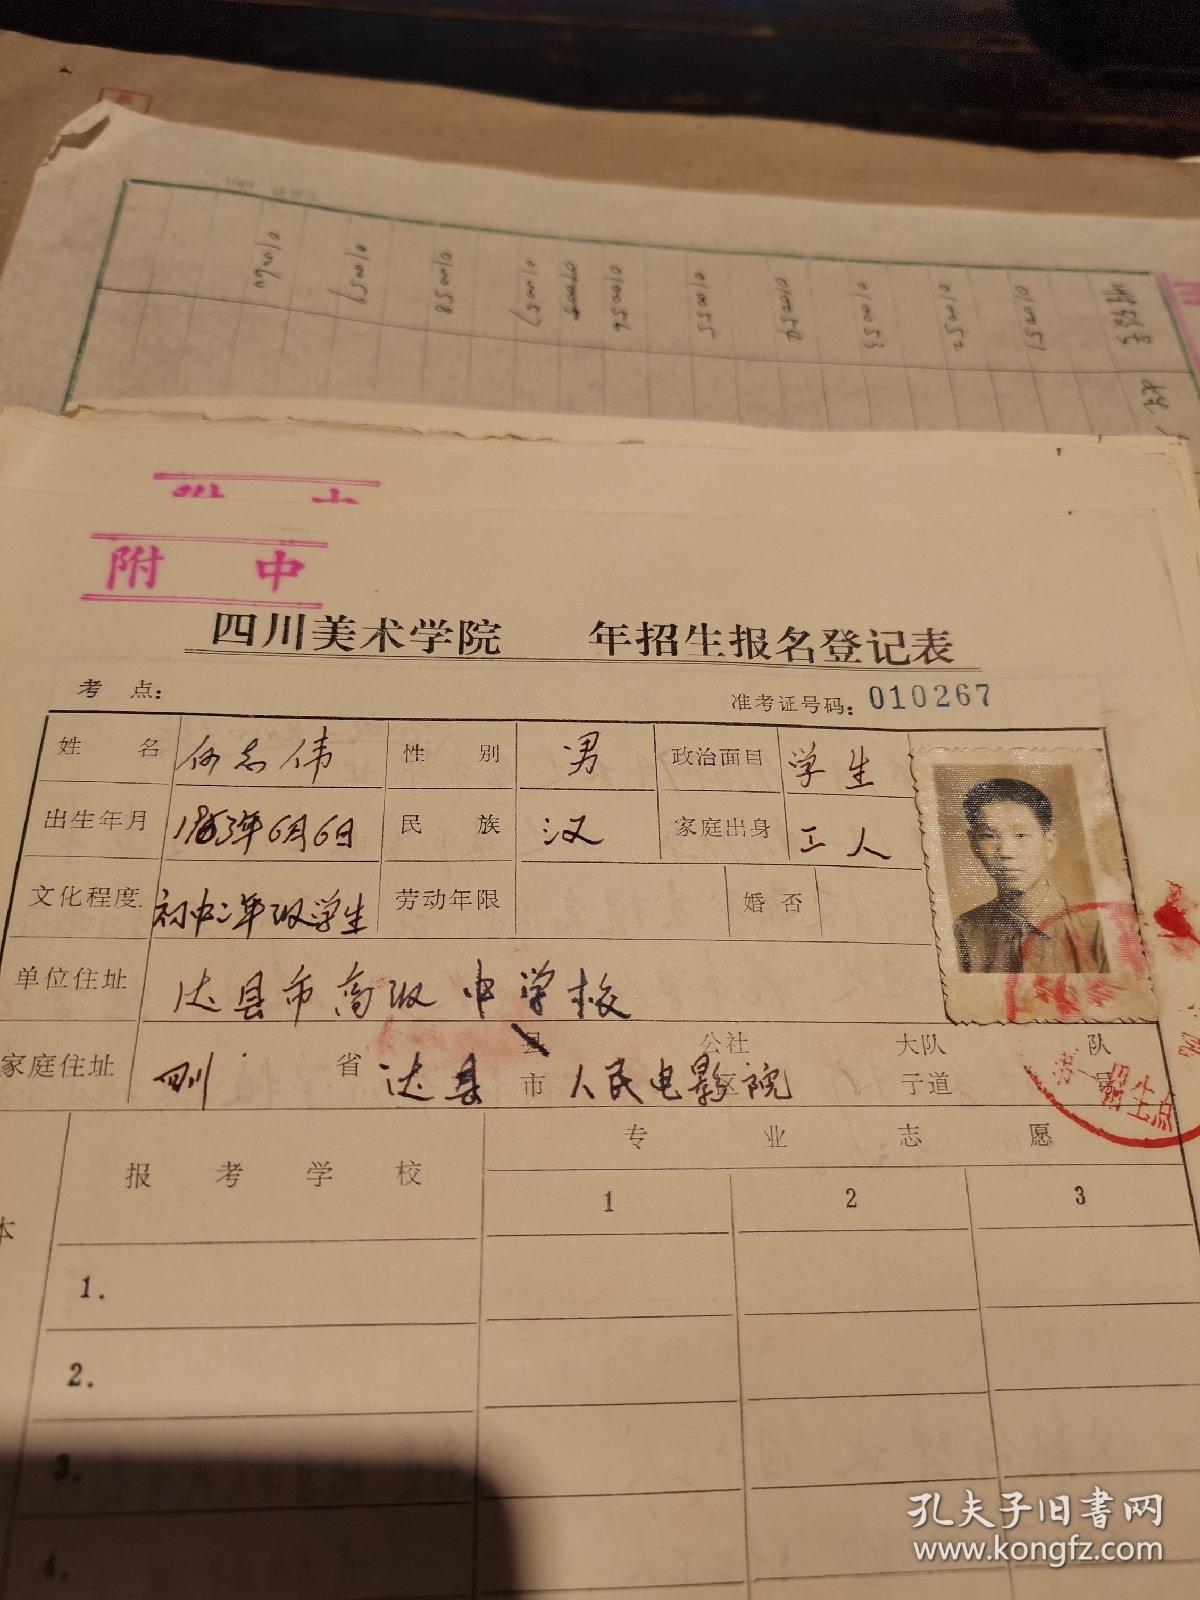 010051
010052
010053
010054
010055
010056
010057
010058
附 中
四川美术学院 年招生报名登记表
考 点： 准考证号码：010267
姓 名 何志伟 性 别 男 政治面目 学生
出生年月 1963年6月6日 民 族 汉 家庭出身 工人
文化程度 初中二年级学生 劳动年限 婚 否
单位住址 达县市高级中学校
家庭住址 四川 省 达县 县 市 人民电影院 公社 区 大队 亍道 队 号
招生点
报 考 学 校 专 业 志 愿
1 2 3
本
1.
2.
3.
4.
孔夫子旧书网
www.kongfz.com